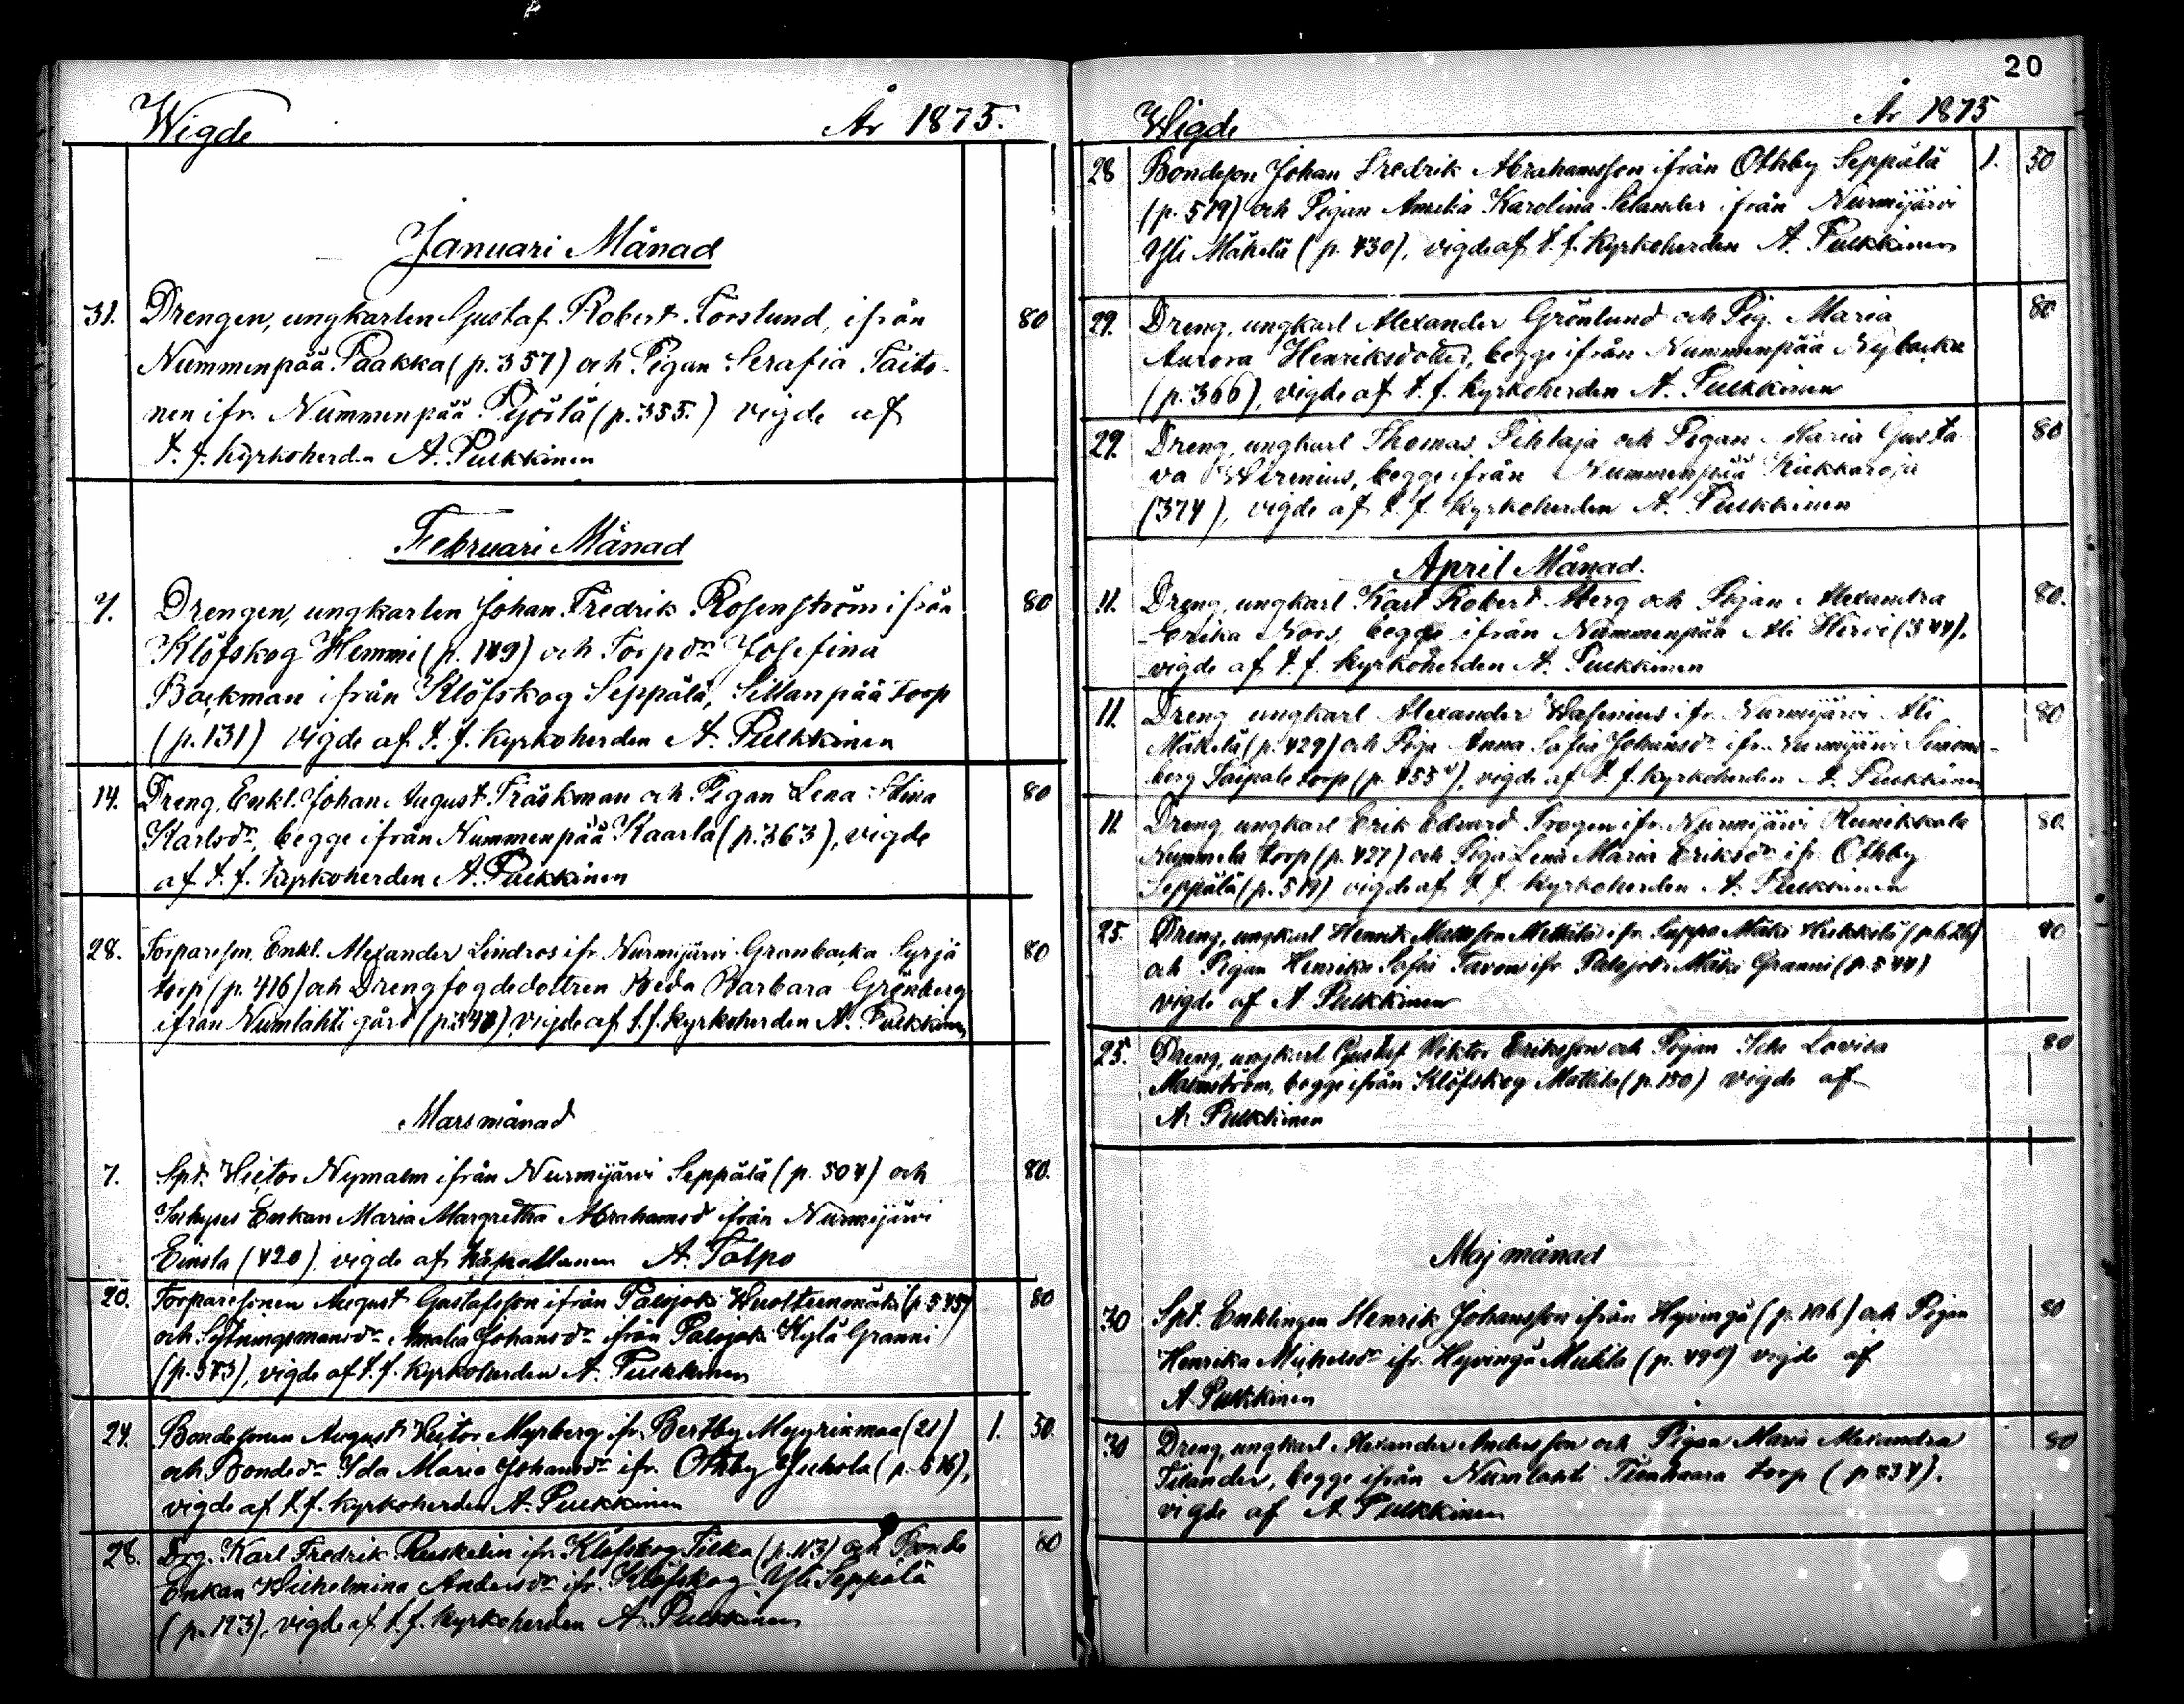 Wigde År 1875.
Januari Månad
31. Drengen, ungkarlen Gustaf Robert Forslund, ifrån 80
Nummenpää Paakka (p. 357) och Pigan Serafia Saito-
nen ifr. Nummenpää Pyöslä (p. 355.) vigde af
t. f. Kyrkoherden A. Pulkkinen
Februari Månad
7. Drengen, ungkarlen Johan Fredrik Rosenström ifrån 80
Klöfskog Hemmi (p. 149) och Torpdr Josefina
Backman ifrån Klöfskog Seppälä, Sillanpää torp
(p. 131) vigde af t. f. Kyrkoherden A. Pulkkinen
14. Dreng, Enkl. Johan August Träskman och Pigan Lena Stina 80
Karlsdr, begge ifrån Nummenpää Kaarla (p. 363), vigde
af t. f. Kyrkoherden A. Pulkkinen
28. Torpareson, Enkl. Alexander Lindros ifr. Nurmijärvi Granbacka Syrjä 80
torp (p. 416) och Drengfogdedottren Heda Barbara Grönberg
ifrån Numlahti gård vigde af t. f. Kyrkoherden A. Pulkkinen
Mars månad
7. Spt. Victor Nymalm ifrån Nurmijärvi Seppälä (p. 504) och 80.
Enkan Maria Margretha Abrahamsd ifrån Nurmijärvi
(420) vigde af Kapellanen A. Talpo
20. Torparesonen August Gustafsson ifrån Palojoki 80
och Sytningsmansdr Amalia Johansdr ifrån Palojoki Kylä Granni
(p. 573), vigde af t. f. Kyrkoherden A. Pulkkinen
24. Bondesonen August Victor Myrberg ifr. Bertby Myyrinmaa (21) 1. 50.
och Bondedr Ida Maria Johansdr ifr. Othby Juhola
vigde af t. f. Kyrkoherden A. Pulkkinen
28. Drg. Karl Fredrik Ruskelin ifr. Klöfskog (p. 113) och Bonde 80
Enkan Wilhelmina Andersdr ifr. Klöfskog Yli Seppälä
(p. 123), vigde af t. f. Kyrkoherden A. Pulkkinen
20
Wigde År 1875
28 Bondeson Johan Fredrik Abrahamsson ifrån Othby Seppälä 1. 50
(p. 519) och Pigan Amelia Karolina Selander ifrån Nurmijärvi
Yli Mäkelä (p. 430), vigde af t. f. Kyrkoherden A. Pulkkinen
29. Dreng, ungkarl Alexander Grönlund och Pig. Maria 80
Aurora Henriksdotter, begge ifrån Nummenpää Nybacka
(p. 366), vigde af t. f. Kyrkoherden A. Pulkkinen
29. Dreng, ungkarl Thomas Pihlaja och Pigan Maria Gusta- 80
va Wirenius, begge ifrån Nummenpää Kukkaroja
(374), vigde af t. f. Kyrkoherden A. Pulkkinen
April Månad.
11. Dreng, ungkarl Karl Robert Åberg och Pigan Alexandra 80.
Erika Nors, begge ifrån Nummenpää Ali Hirvi (344),
vigde af t. f. Kyrkoherden A. Pulkkinen
11. Dreng ungkarl Alexander Wasenius ifr. Nurmijärvi Ali 80
Mäkelä (p. 429) och Piga Anna Sofia Johansdr ifr. Nurmijärvi Simons-
berg Saipale torp vigde af t. f. Kyrkoherden A. Pulkkinen
11. Dreng, ungkarl Erik Edvard Trogen ifr. Nurmijärvi Kunikkala 80
Nummela torp (p. 427) och Piga Lena Maria Eriksdr ifr. Othby
Seppälä (p. 519) vigde af t. f. Kyrkoherden A. Pulkkinen
25. Dreng, ungkarl Henrik Mattsson Mettälä ifr. Suppo Mäki Heikkilä 40
och Pigan Henrika Sofia ifr. Palojoki Mäki Granni (p. 544)
vigde af A. Pulkkinen
25. Dreng, ungkarl Gustaf Viktor Eriksson och Pigan Lovisa 80
Malmström, begge ifrån Klöfskog Mattila (p. 150) vigde af
A. Pulkkinen
Maj månad
30 Spt. Enklingen Henrik Johansson ifrån Hyvingä (p. 106) och Pigan 80
Henrika Michelsdr ifr. Hyvingä vigde af
A. Pulkkinen
30 Dreng, ungkarl Alexander Andersson och Pigan Maria Alexandra 80
Tilander, begge ifrån Numlahti torp
vigde af A. Pulkkinen